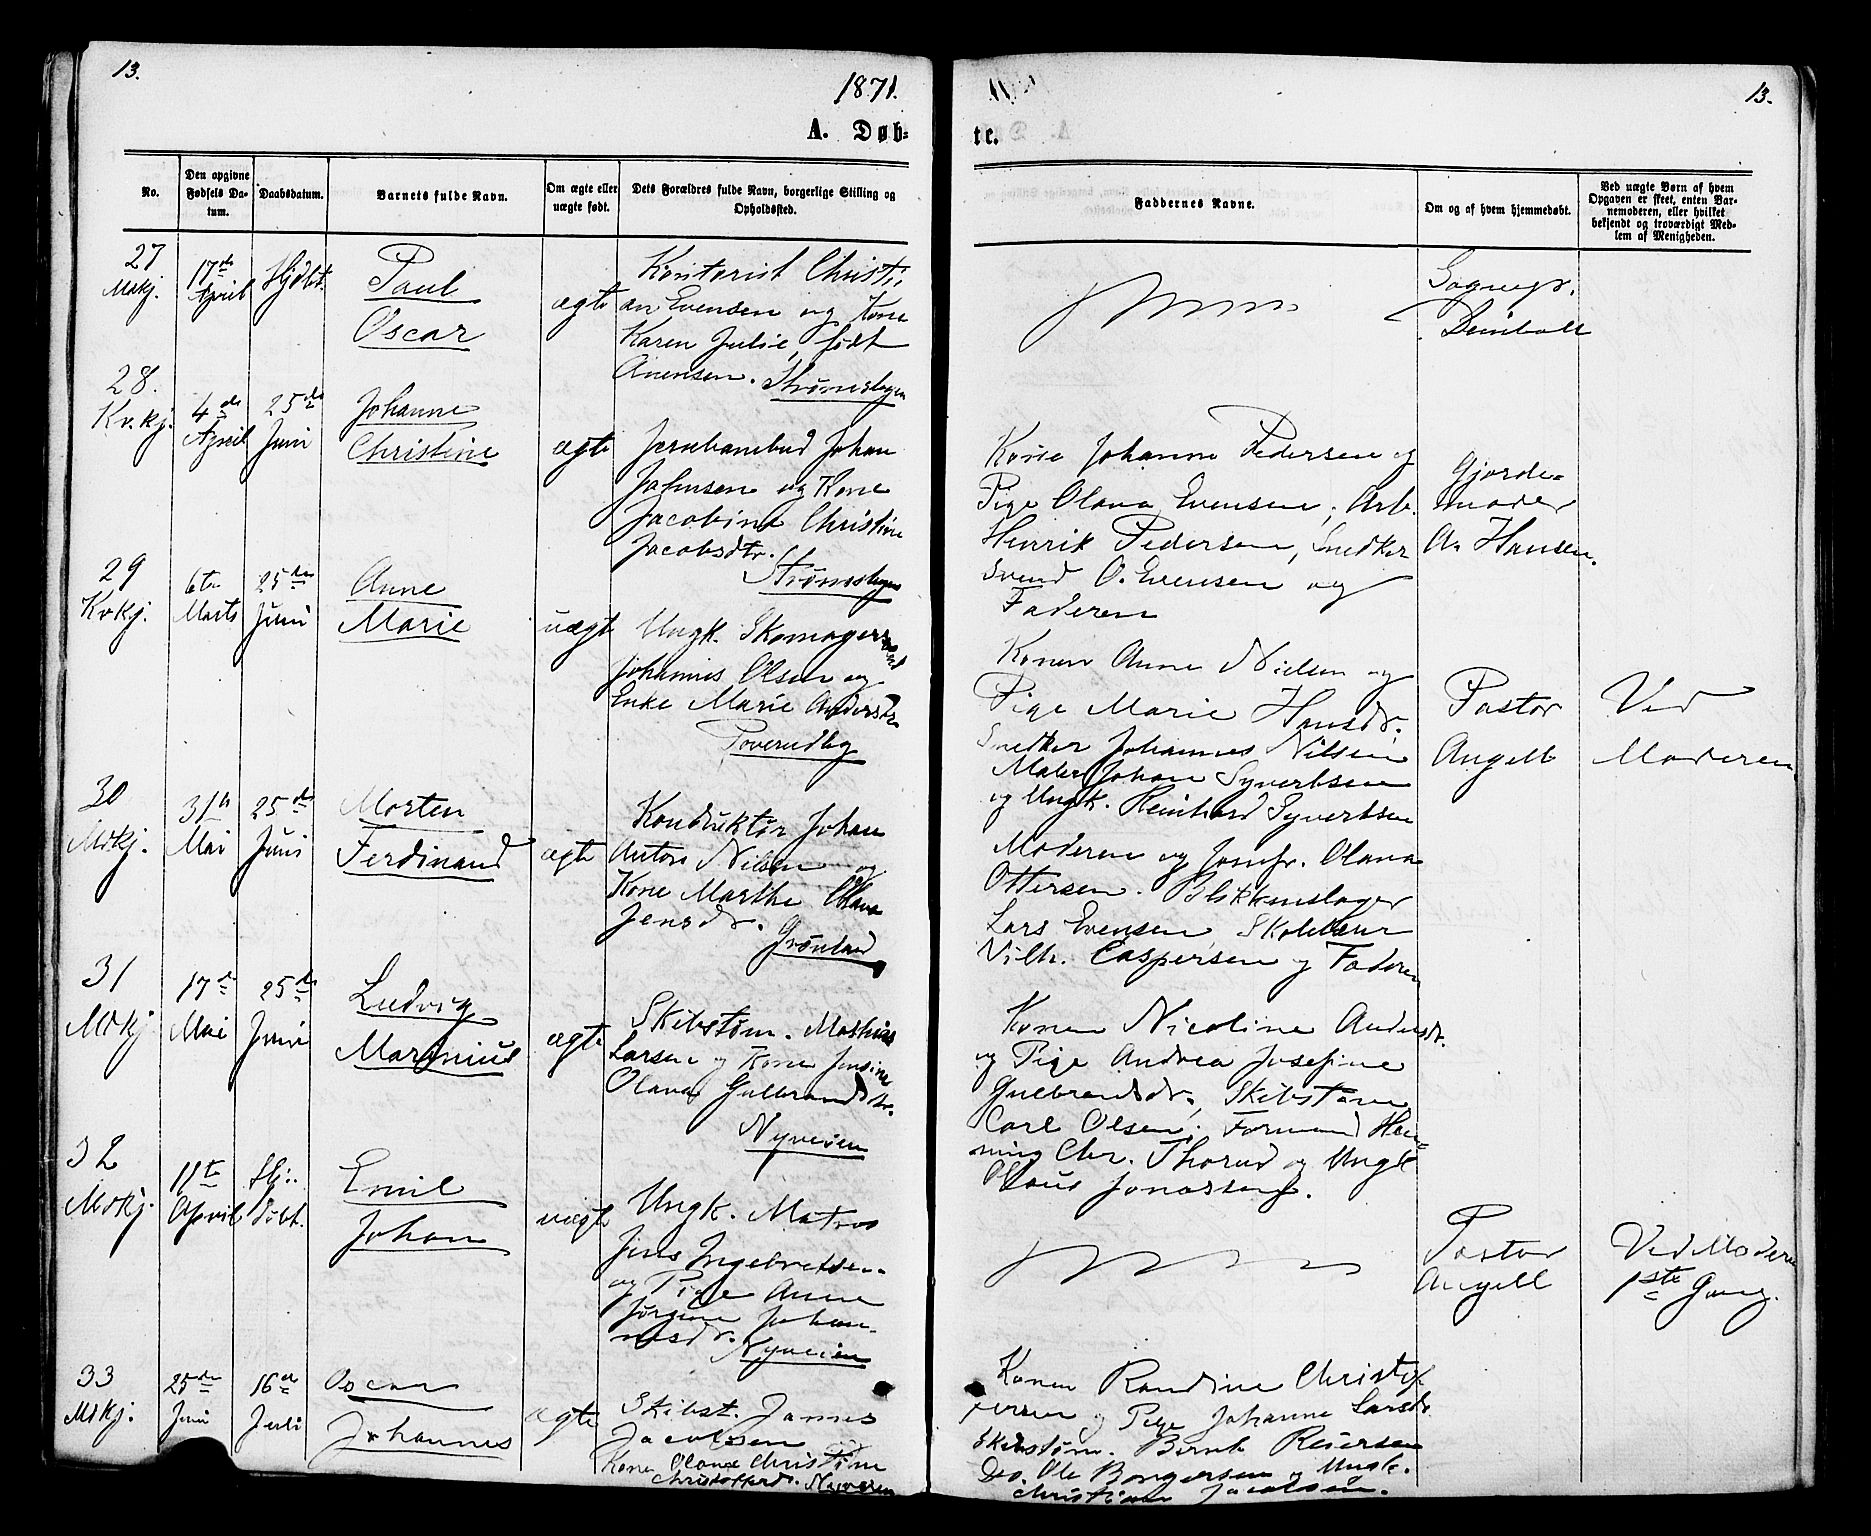 13.
1871.
A. Døb-
No.
Den opgivne Fødsels Da-tum.
Daabsdatum.
Barnets fulde Navn.
Om ægte eller uægte født.
Dets Forældres fulde Navn, borgerlige Stilling og Opholdssted.
27
Mkj.
17de
April
Hjdbt.
Paul
Oscar
ægte
Kontorist Christi-
an Evensen og Kone
Karen Julie, født
Anensen. Strømslagen
28.
Kv.kj.
4de
April
25de
Juni
Johanne
Christine
ægte
Jernbanebud Johan
Johnsen og Kone
Jacobine Christine
Jacobsdtr.
29
Kvkj.
6te
Marts
25de
Juni
Anne
Marie
uægte
Ungk. Skomagersvend
Johannes Olsen og
Enke Marie Andersdtr
30
Mkj.
31te
Mai
25de
Juni
Morten
Ferdinand
ægte
Konduktør Johan
Anton Nilsen og
Kone Marthe Olava
Jensdr.
Grønland
31
Mkj.
17de
Mai
25de
Juni
Ludvig
Marinius
ægte
Skibstøm. Mathias
Larsen og Kone Jensine
Olava Gulbrandsdtr.
Nyveien
32
Mkj.
11te
April
Hj:
døbt.
Emil
Johan
uægte
Ungk. Matros
Jens Ingebretsen
og Pige Anne
Jørgine Johan-
nesdr.
Nyveien
33
Mkj.
25de
Juni
16de
Juli
Oscar
Johannes
ægte
Skibst. James
Jacobsen
Kone Olava Christine
Christoffersd. Nyveien
13.
te.
Faddernes Navne.
Om og af hvem hjemmedøbt.
Ved uægte Børn af hvem Opgaven er skeet, enten Bar-nemoderen, eller hvilket bekjendt og troværdigt Med-lem af Menigheden.
Sognepr.
Kone Johanne Pedersen og
Pige Olava Evensen, Arb.
Henrik Pedersen, Snedker
Svend O. Evensen og
Faderen
Gjorde-
moder
A. Hansen.
Konen Anne Nielsen og
Pige Marie Hansdr.
Snedker Johannes Nilsen
Maler Johan Syvertsen
og Ungk. Reinhard Syvertsen
Pastor
Angell
Ved
Moderen
Moderen og Jomfr. Olava
Ottersen. Blikkenslager
Lars Evensen, Skolelærer
Vilh. Caspersen og Faderen
Konen Nicoline Andersdr.
og Pige Andrea Josefine
Gulbrandsdr., Skibstøm
Carl Olsen, Formand Hen-
ning Chr. Thorud og Ungk
Olaus Jonasberg.
Pastor
Angell
Ved Moderen
1ste Gang.
Konen Randine Christof-
fersen og Pige Johanne Larsdr
Skibstøm. Bernt Reiersen
Do. Ole Borgersen og Ungk.
Christian Jacobsen.